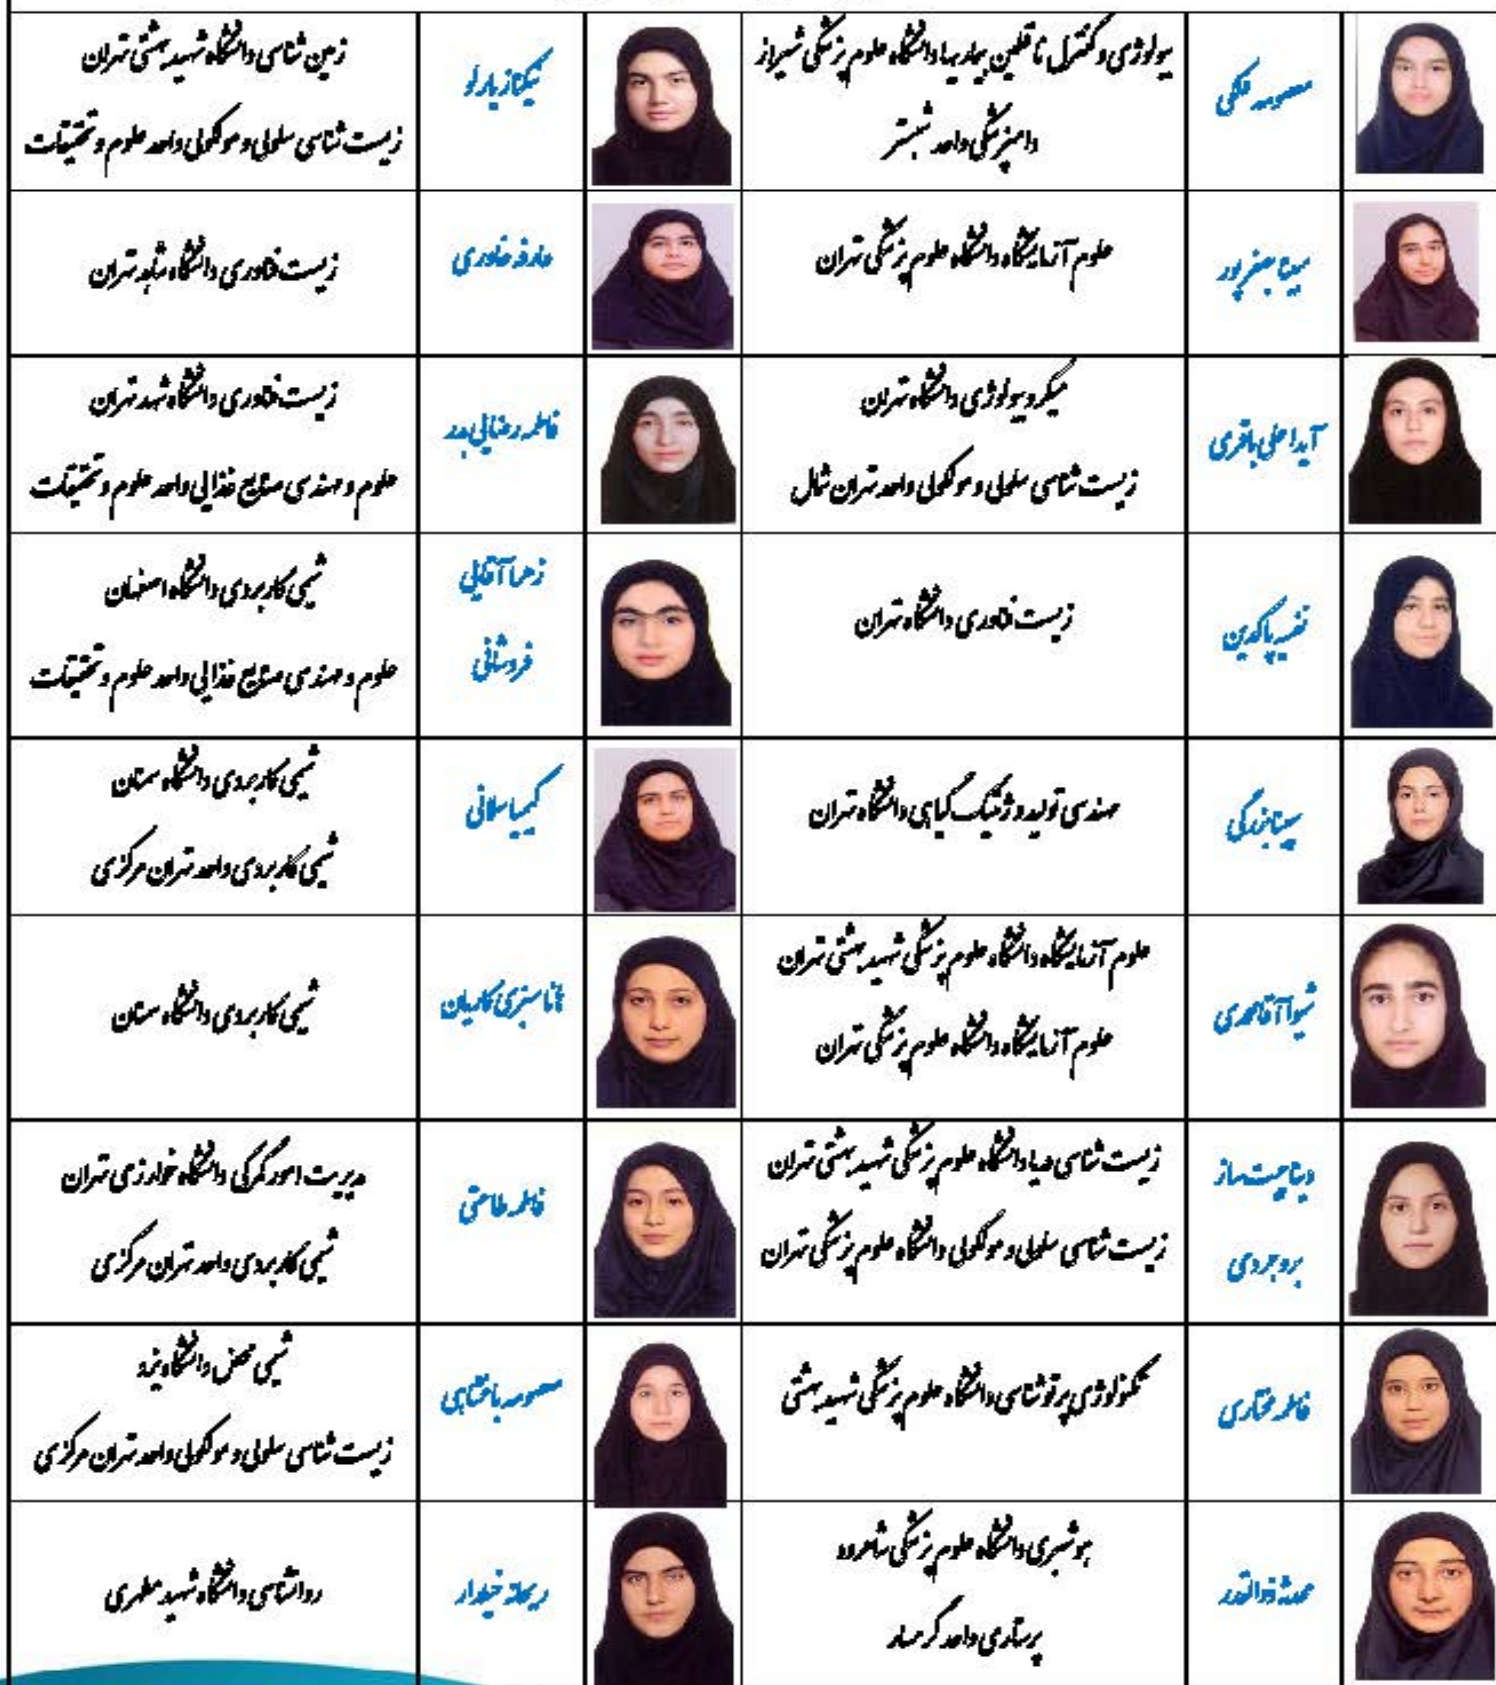 معصومه ملکی
بیولوژی و کنترل ناقلین بیماریها دانشگاه علوم پزشکی شیراز
دامپزشکی واحد شبستر
زمین شناسی دانشگاه شهید بهشتی تهران
زیست شناسی سلولی و مولکولی واحد علوم و تحقیقات
مبینا جعفرپور
علوم آزمایشگاه دانشگاه علوم پزشکی تهران
عارفه خاوری
زیست فناوری دانشگاه شاهد تهران
آیدا علی باقری
میکروبیولوژی دانشگاه تهران
زیست شناسی سلولی و مولکولی واحد تهران شمال
فاطمه رضایی بدر
زیست فناوری دانشگاه تهران
علوم و مهندسی صنایع غذایی واحد علوم و تحقیقات
نفیسه پاکدین
زیست فناوری دانشگاه تهران
زهرا آقایی
فروشانی
شیمی کاربردی دانشگاه اصفهان
علوم و مهندسی صنایع غذایی واحد علوم و تحقیقات
مهندسی تولید و ژنتیک گیاهی دانشگاه تهران
کیمیا سلامی
شیمی کاربردی دانشگاه سمنان
شیمی کاربردی واحد تهران مرکزی
شیوا آقامحمدی
علوم آزمایشگاه دانشگاه علوم پزشکی شهید بهشتی تهران
علوم آزمایشگاه دانشگاه علوم پزشکی تهران
سبزی کاریان
شیمی کاربردی دانشگاه سمنان
دینا چیت ساز
بروجردی
زیست شناسی دریا دانشگاه علوم پزشکی شهید بهشتی تهران
زیست شناسی سلولی و مولکولی دانشگاه علوم پزشکی تهران
فاطمه طاعتی
مدیریت امور گمرکی دانشگاه خوارزمی تهران
شیمی کاربردی واحد تهران مرکزی
فاطمه مختاری
تکنولوژی پرتوشناسی دانشگاه علوم پزشکی شهید بهشتی
معصومه
شیمی محض دانشگاه یزد
زیست شناسی سلولی و مولکولی واحد تهران مرکزی
محدثه ذوالقدر
هوشبری دانشگاه علوم پزشکی شاهرود
پرستاری واحد گرمسار
ریحانه خیلدار
روانشناسی دانشگاه شهید مطهری